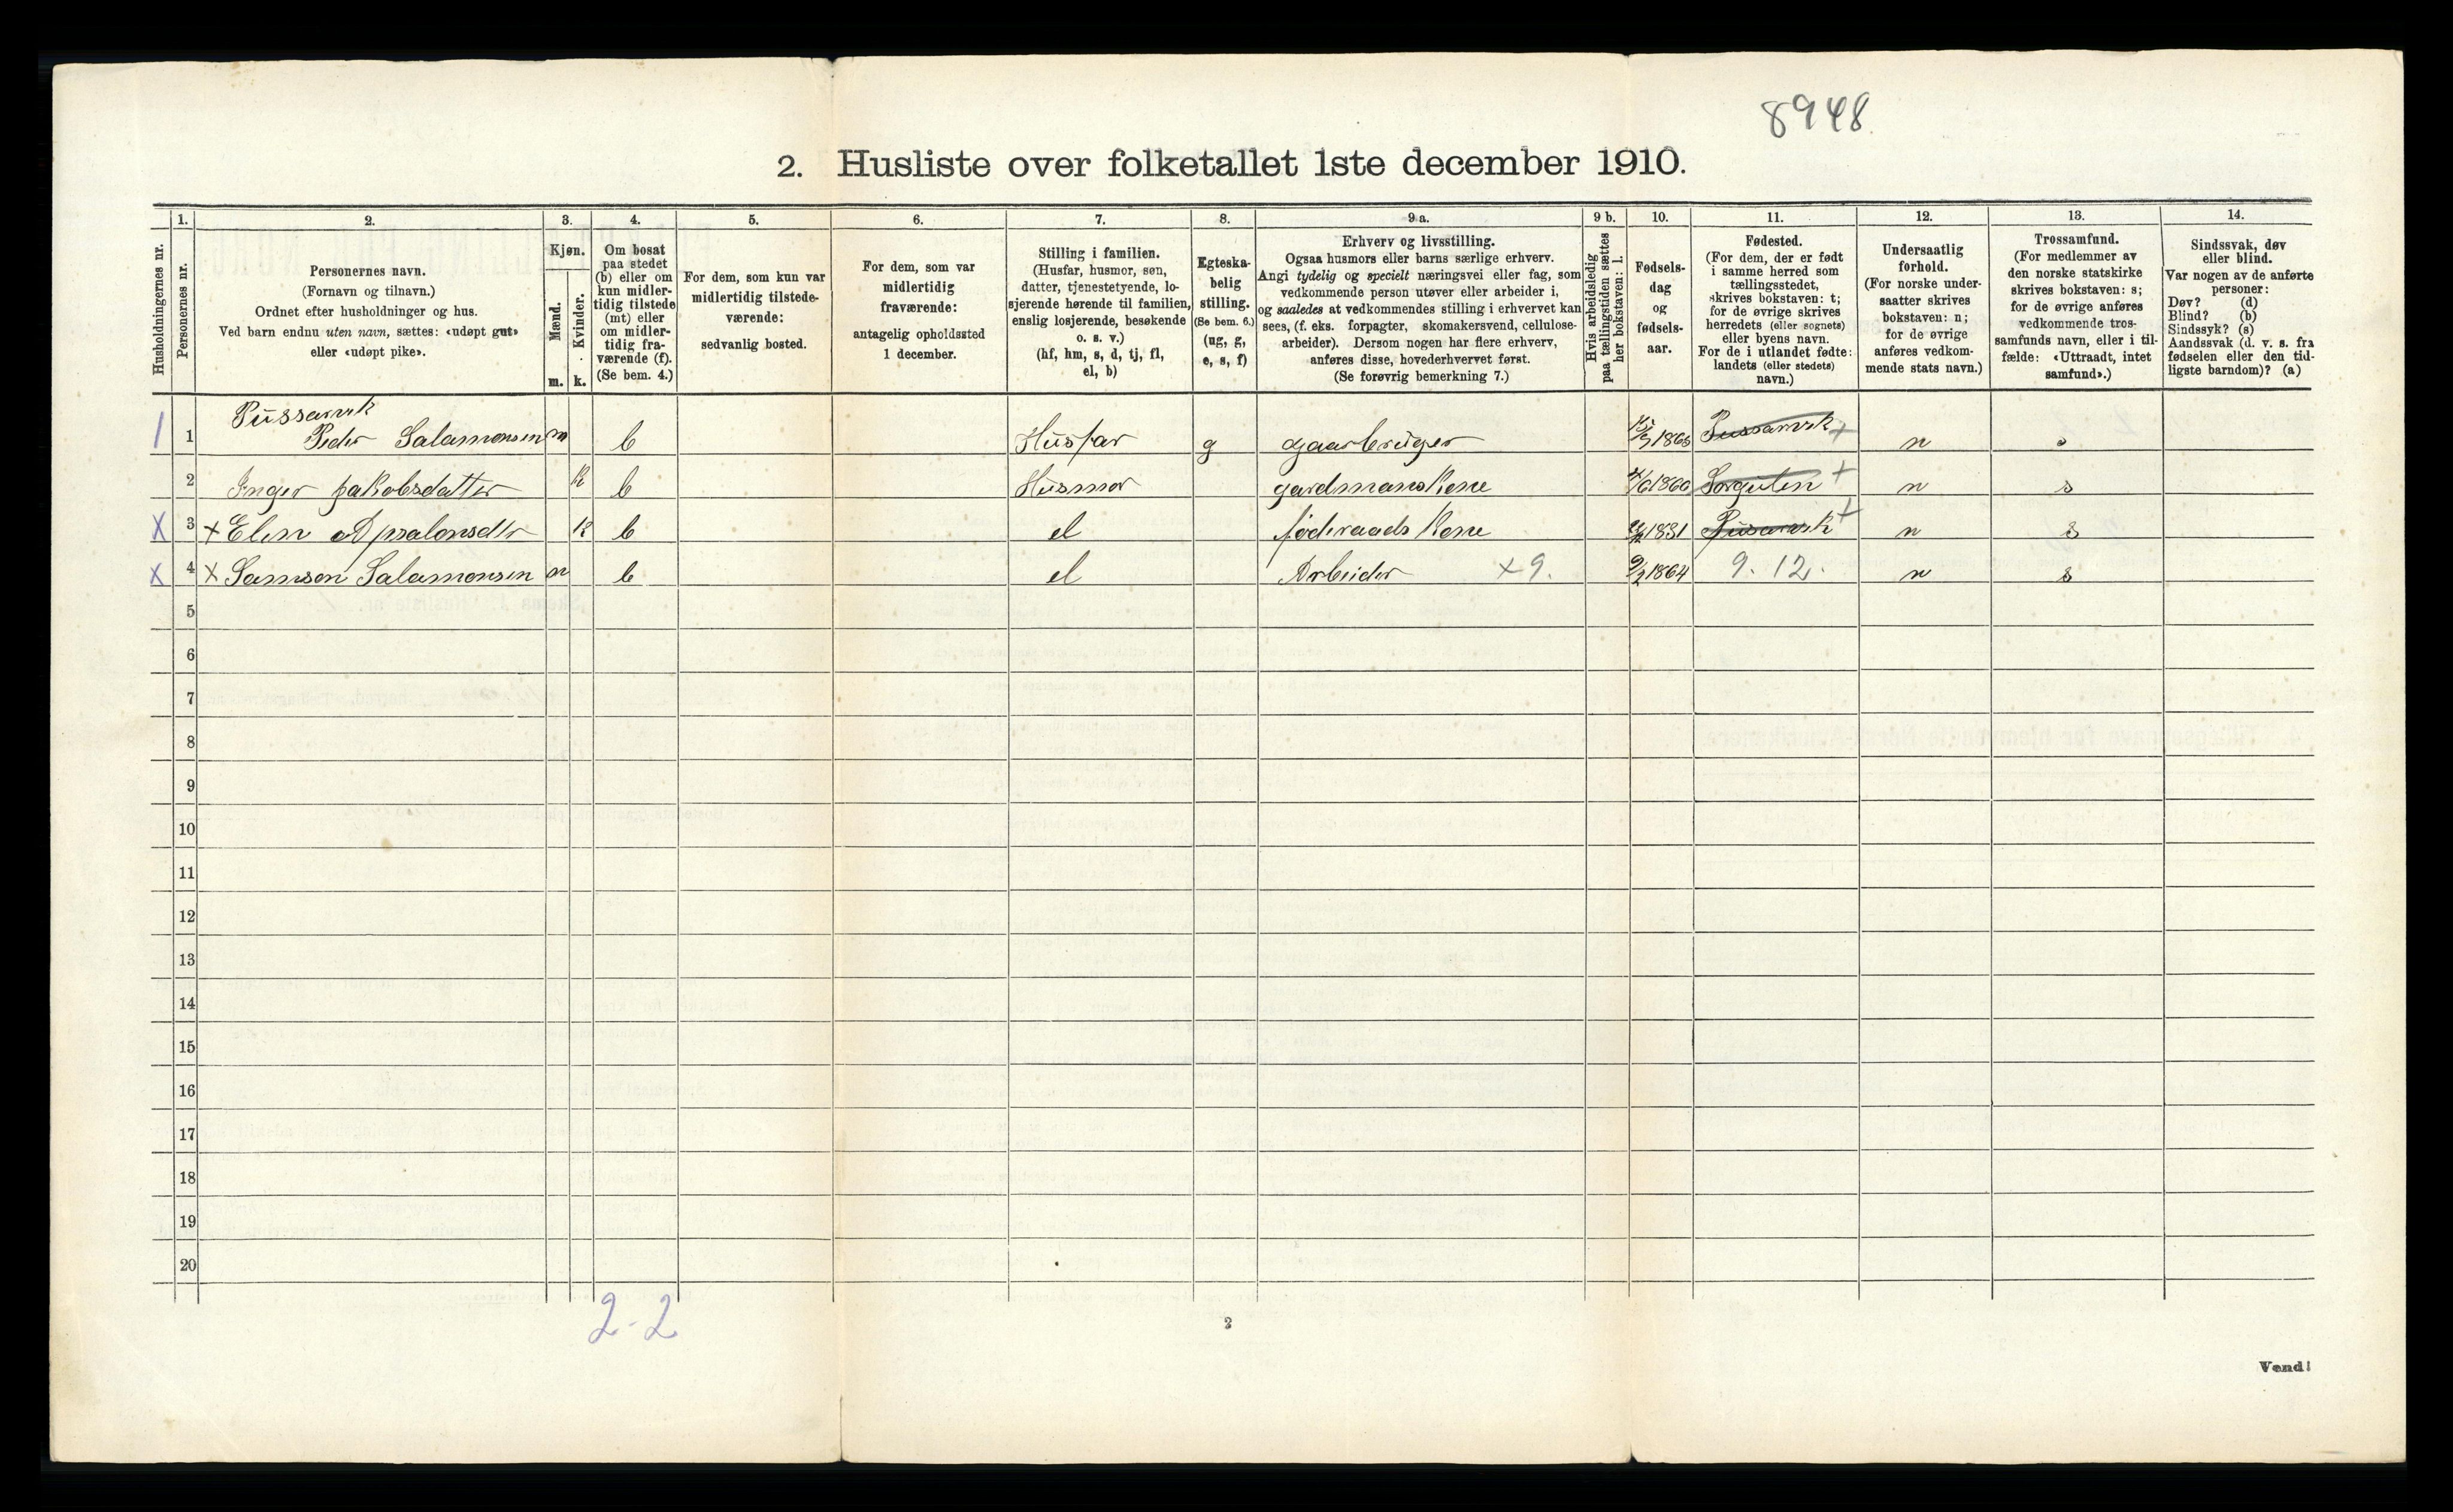 8948
2. Husliste over folketallet 1ste december 1910.
Husholdningernes nr.
1.
Personernes nr.
2.
Personernes navn.
(Fornavn og tilnavn.)
Ordnet efter husholdninger og hus.
Ved barn endnu uten navn, sættes: «udøpt gut»
eller «udøpt pike».
3.
Kjøn.
Mænd.
Kvinder.
m. k.
4.
Om bosat
paa stedet
(b) eller om
kun midler-
tidig tilstede
(mt) eller
om midler-
tidig fra-
værende (f).
(Se bem. 4.)
5.
For dem, som kun var
midlertidig tilstede-
værende:
sedvanlig bosted.
6.
For dem, som var
midlertidig
fraværende:
antagelig opholdssted
1 december.
7.
Stilling i familien.
(Husfar, husmor, søn,
datter, tjenestetyende, lo-
sjerende hørende til familien,
enslig losjerende, besøkende
o. s. v.)
(hf, hm, s, d, tj, fl,
el, b)
8.
Egteska-
belig
stilling.
(Se bem. 6.)
(ug, g,
e, s, f)
9 a.
Erhverv og livsstilling.
Ogsaa husmors eller barns særlige erhverv.
Angi tydelig og specielt næringsvei eller fag, som
vedkommende person utøver eller arbeider i,
og saaledes at vedkommendes stilling i erhvervet kan
sees, (f. eks. forpagter, skomakersvend, cellulose-
arbeider). Dersom nogen har flere erhverv,
anføres disse, hovederhvervet først.
(Se forøvrig bemerkning 7.)
9 b.
Hvis arbeidsledig
paa tællingstiden sættes
her bokstaven: l.
10.
Fødsels-
dag
og
fødsels-
aar.
11.
Fødested.
(For dem, der er født
i samme herred som
tællingsstedet,
skrives bokstaven: t;
for de øvrige skrives
herredets (eller sognets)
eller byens navn.
For de i utlandet fødte:
landets (eller stedets)
navn.)
12.
Undersaatlig
forhold.
(For norske under-
saatter skrives
bokstaven: n;
for de øvrige
anføres vedkom-
mende stats navn.)
13.
Trossamfund.
(For medlemmer av
den norske statskirke
skrives bokstaven: s;
for de øvrige anføres
vedkommende tros-
samfunds navn, eller i til-
fælde: «Uttraadt, intet
samfund».)
14.
Sindssvak, døv
eller blind.
Var nogen av de anførte
personer:
Døv? (d)
Blind? (b)
Sindssyk? (s)
Aandssvak (d. v. s. fra
fødselen eller den tid-
ligste barndom)? (a)
Pussarvik
1 1 Peder Salamonsen m b Husfar g gaarbruger n s
2 Inger Jakobsdatter k b Husmor gardmanskone 1860 + n s
X 3 + Elen Apsalonsdtr k b el føderaads Kone 1831 + n s
X 4 X Samson Salamonsen m b el Arbeider x9. 1864 9. 12. n s
5
6
7
8
9
10
11
12
13
14
15
16
17
18
19
20
2-2
2
Vend!